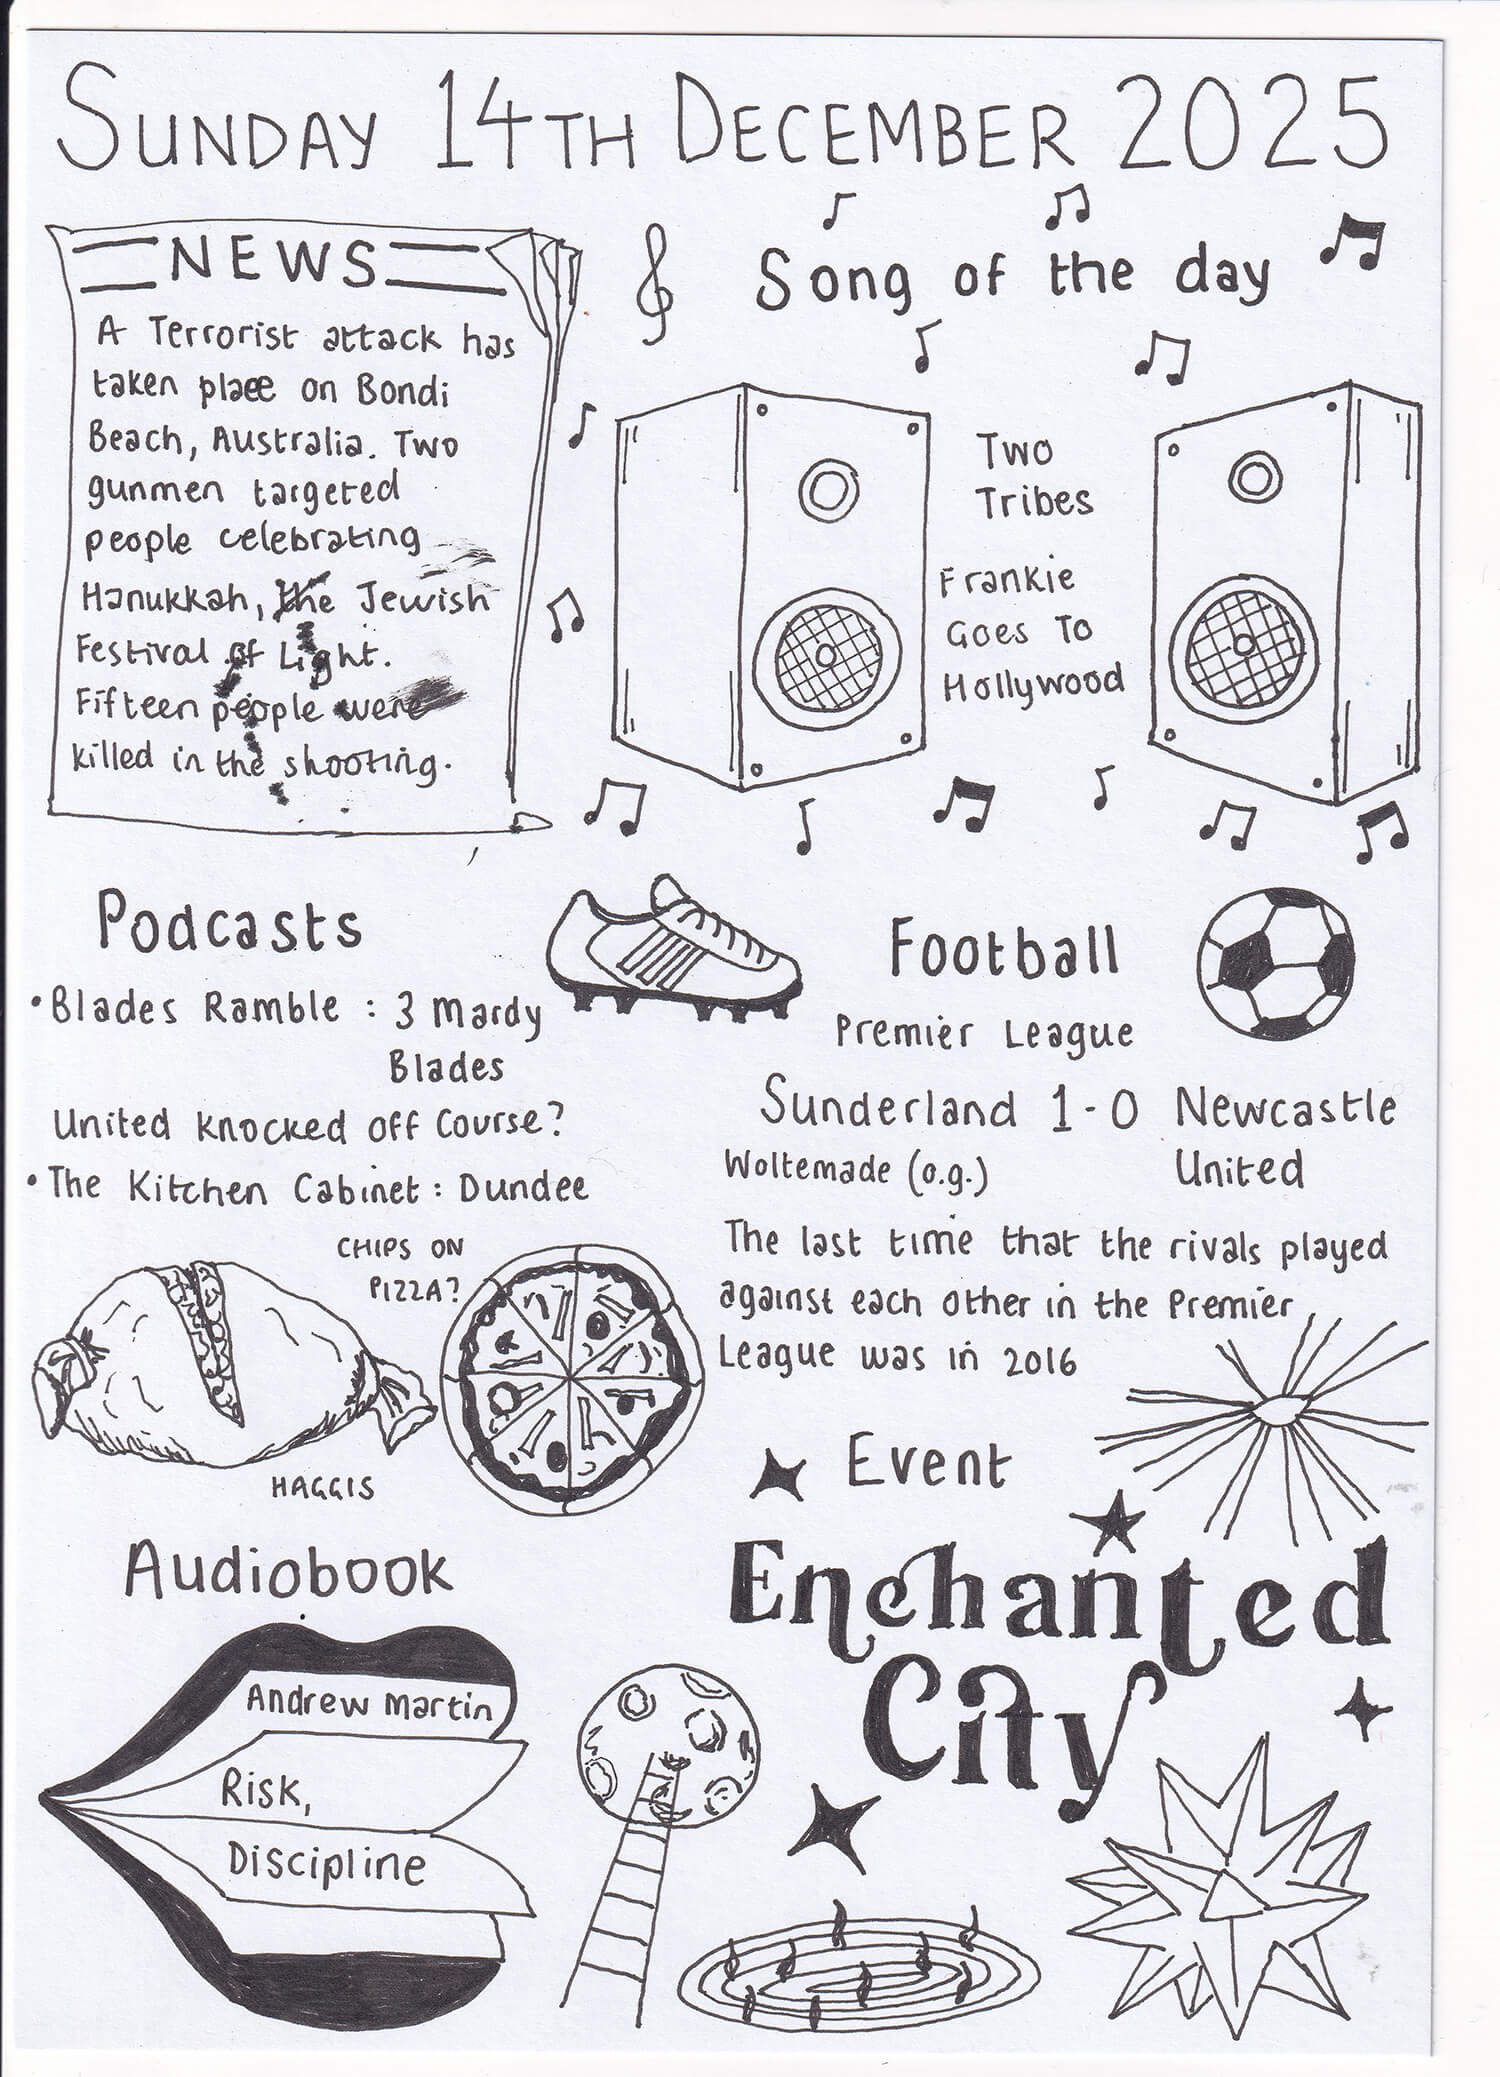 SUNDAY 14TH DECEMBER 2025
NEWS
A Terrorist attack has
taken place on Bondi
Beach, Australia. Two
gunmen targeted
people celebrating
Hanukkah, the Jewish
Festival of Light.
Fifteen people were
killed in the shooting.
Song of the day
Two
Tribes
Frankie
Goes To
Hollywood
Podcasts
• Blades Ramble : 3 Mardy
Blades
United Knocked off Course?
• The Kitchen Cabinet : Dundee
CHIPS ON
PIZZA?
HAGGIS
Football
Premier League
Sunderland 1-0 Newcastle
United
Woltemade (o.g.)
The last time that the rivals played
against each other in the Premier
League was in 2016
Event
Enchanted
City
Audiobook
Andrew Martin
Risk,
Discipline